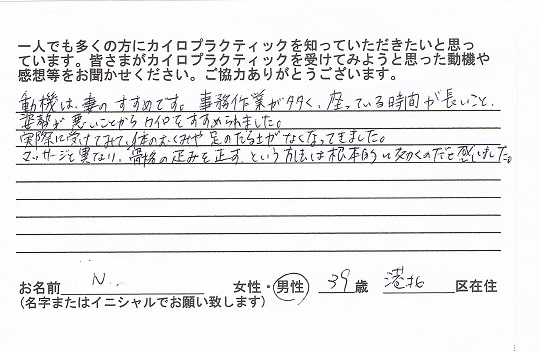 一人でも多くの方にカイロプラクティックを知っていただきたいと思っ
ています。皆さまがカイロプラクティックを受けてみようと思った動機や
感想等をお聞かせください。ご協力ありがとうございます。
動機は、妻のすすめです。事務作業が多く、座っている時間が長いこと、
姿勢が悪いことからカイロをすすめられました。
実際に受けてみて、体のむくみや足のだるさがなくなってきました。
マッサージと異なり、骨格の歪みを正す、という方法は根本的に効くのだと感じました。
お名前 N. 女性・男性 39歳 港北 区在住
(名字またはイニシャルでお願い致します)